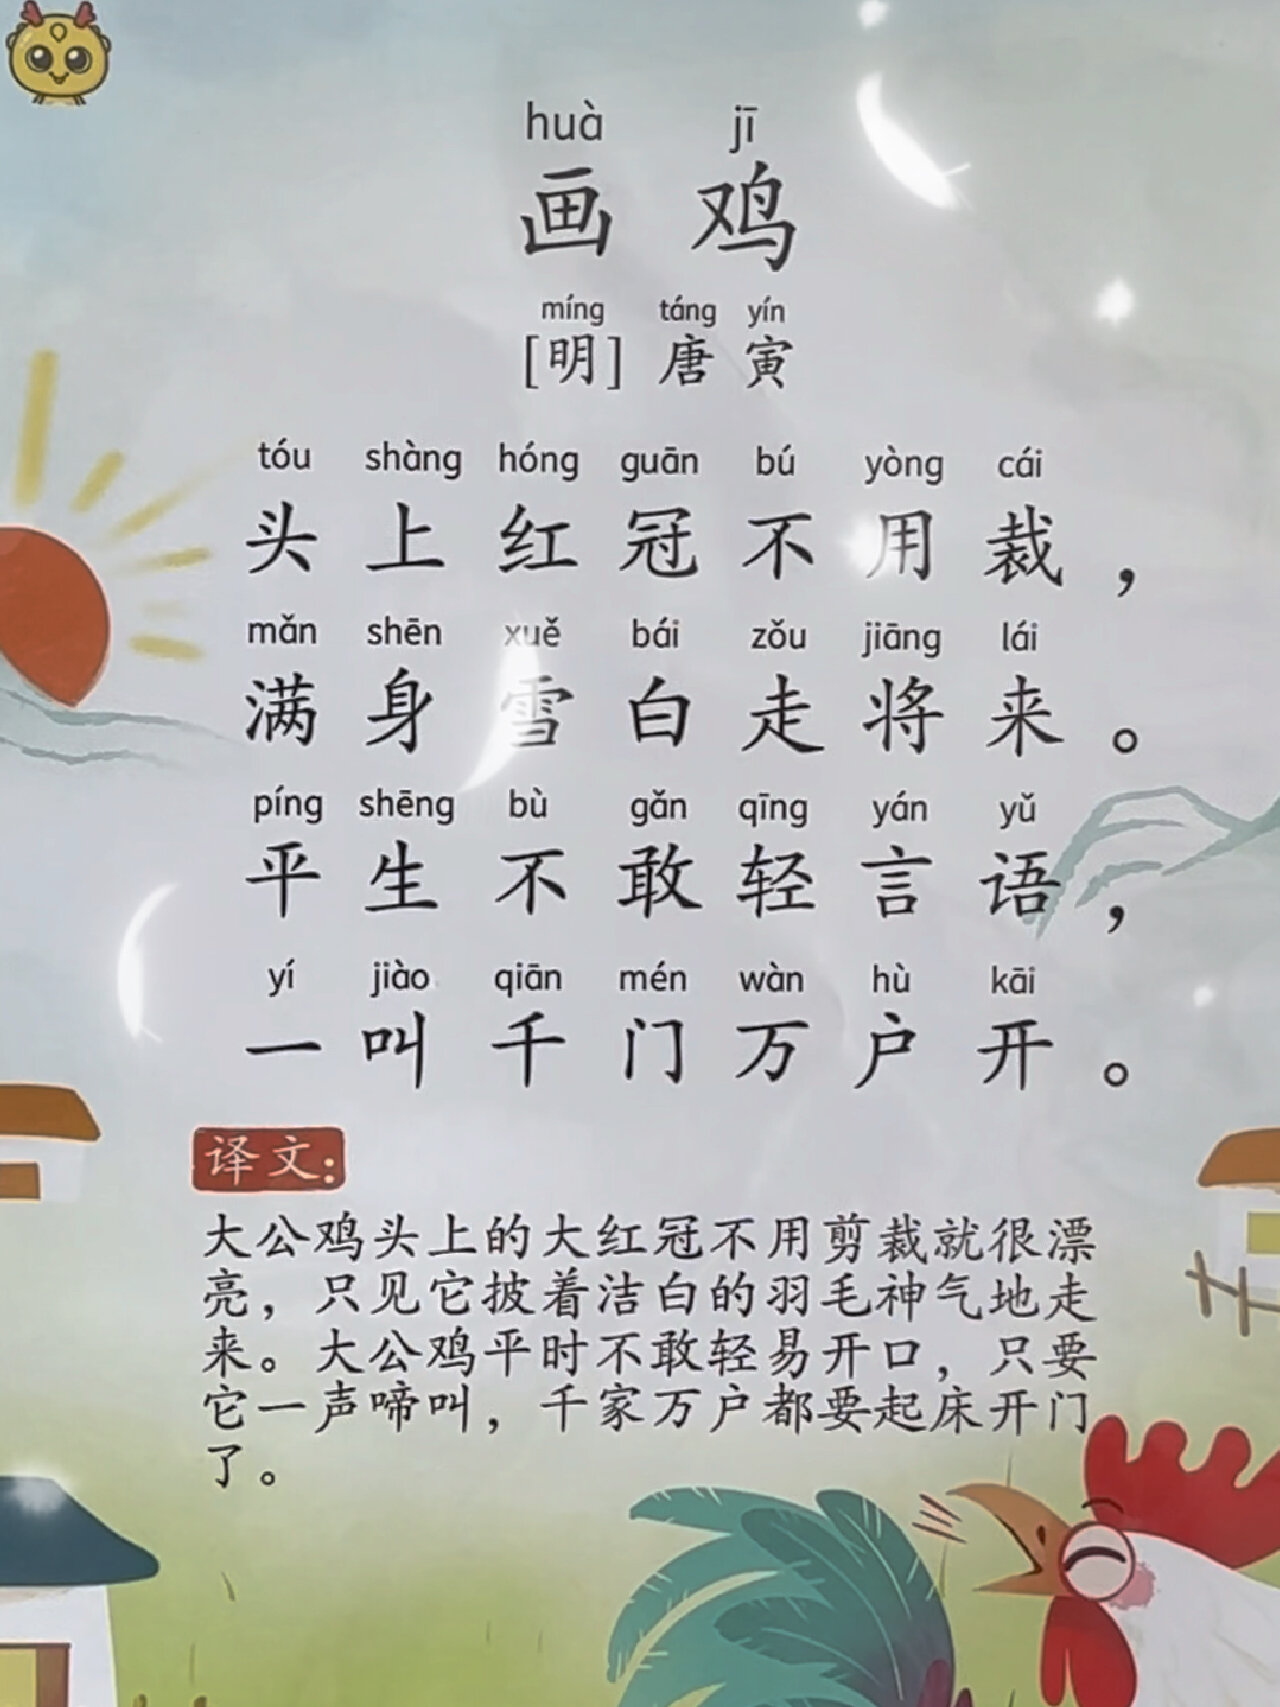 huà jī
画 鸡
míng táng yín
[明] 唐 寅
tóu shàng hóng guān bú yòng cái
头 上 红 冠 不 用 裁，
mǎn shēn xuě bái zǒu jiāng lái
满 身 雪 白 走 将 来。
píng shēng bù gǎn qīng yán yǔ
平 生 不 敢 轻 言 语，
yí jiào qiān mén wàn hù kāi
一 叫 千 门 万 户 开。
译文：
大公鸡头上的大红冠不用剪裁就很漂
亮，只见它披着洁白的羽毛神气地走
来。大公鸡平时不敢轻易开口，只要
它一声啼叫，千家万户都要起床开门
了。